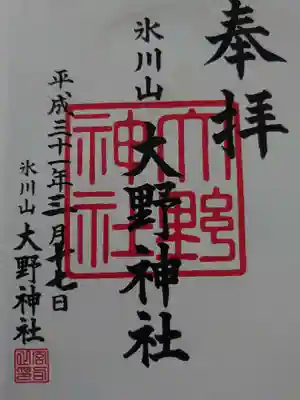 奉拝
氷川山
大野神社
大野神社
平成三十一年三月十七日
氷川山 大野神社